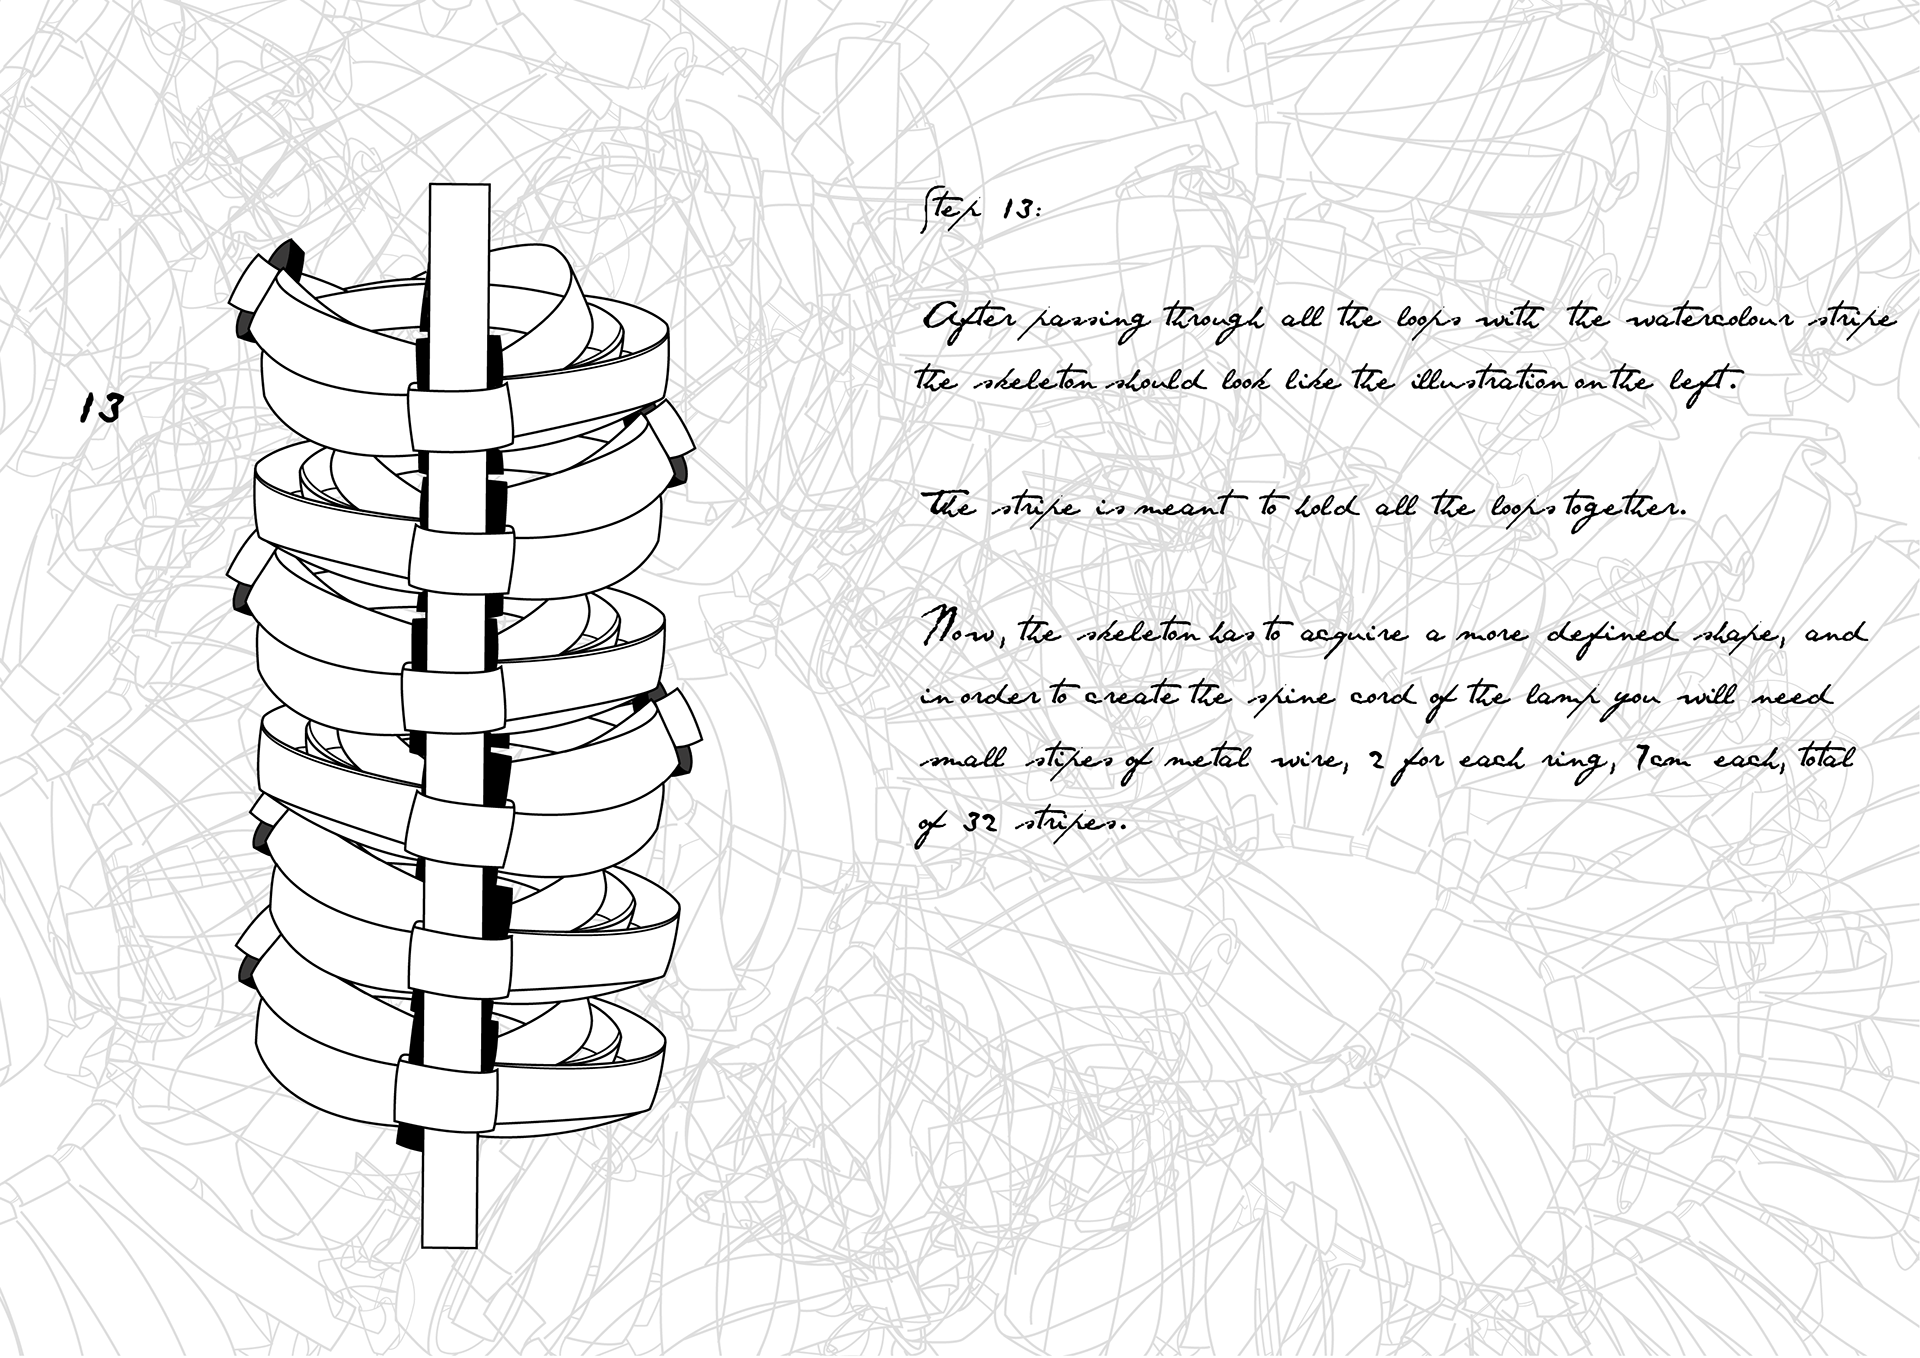 13
Step 13:
After passing through all the loops with the watercolour stripe
the skeleton should look like the illustration on the left.
The stripe is meant to hold all the loops together.
Now, the skeleton has to acquire a more defined shape, and
in order to create the spine cord of the lamp you will need
small stipes of metal wire, 2 for each ring, 7cm each, total
of 32 stripes.